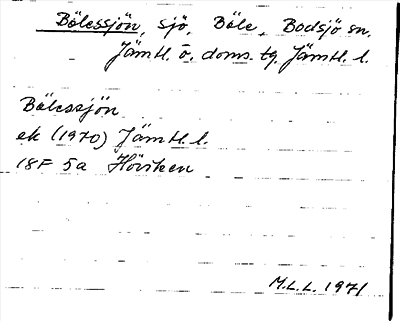 Bölessjön, sjö, Böle, Bodsjö sn.
Jämtl. ö. doms. tg. Jämtl. l.
Bölessjön
ek (1970) Jämtl. l.
18F 5a Höviken
M.L.L. 1971